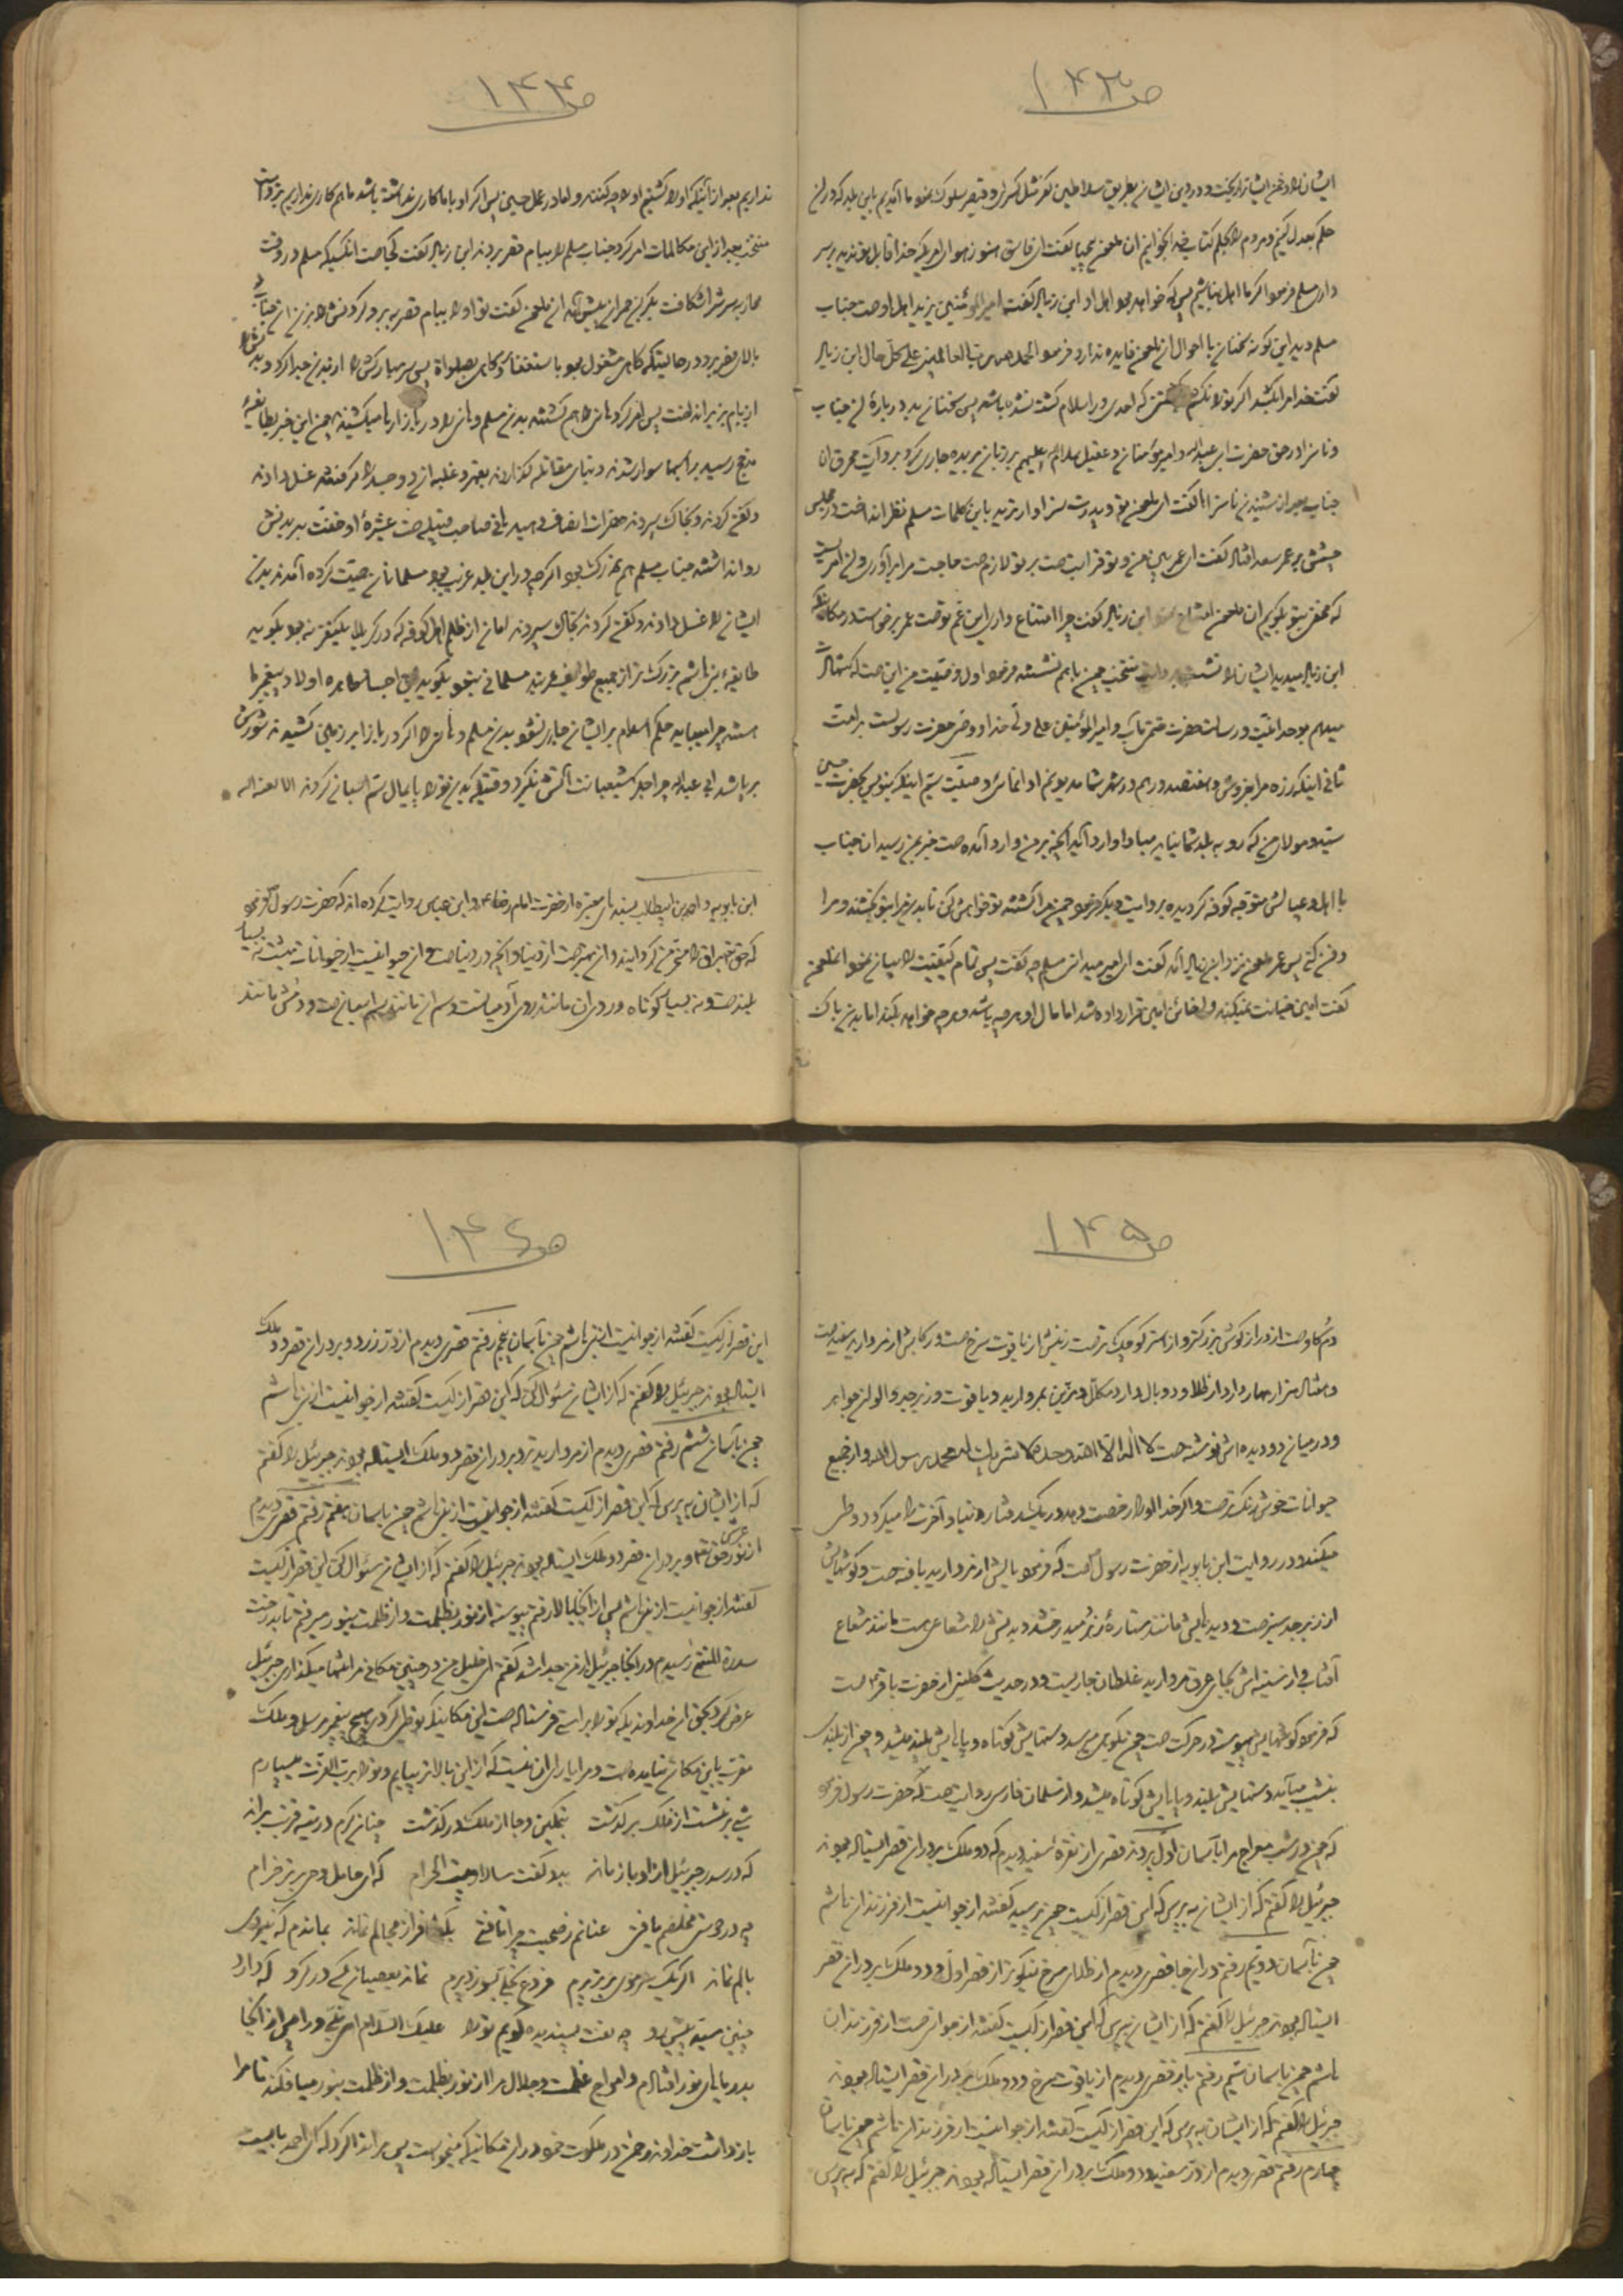 ص ۱۴۳
ایشان را و خون ایشان ریخت و در دین ایشان بطریق سلاطین کفر مثل کسری و قیصر سلوک نمود ما آمدیم باین بلد که در آن
حکم بعدل کنیم و مردم را بحکم کتاب خدا بخوانیم آن ملعون بیحیا گفت ای فاسق هنوز هوای امریکه خدا قابل تو ندید بر سر
داری مسلم فرمود اگر ما اهل نباشیم پس که خواهد بود اهل او ابن زیاد گفت امیرالمؤمنین یزید اهل اوست جناب
مسلم دید این گونه سخنان با احوال آن ملعون فایده ندارد فرمود الحمدلله رب العالمین علی کل حال ابن زیاد
گفت خدا مرا بکشد اگر تو را نکشم کشتنی که احدی در اسلام کشته نشده باشد پس سخنان بد درباره آن جناب
و ناسزا در حق حضرت ابی عبدالله و امیر مؤمنان و عقیل سلام الله علیهم بر زبان بریده جاری کرد بروایت محرق آن
جناب بعد از شنیدن ناسزا گفت ای ملعون تو و پدرت سزاوارترید باین کلمات مسلم نظر انداخت در مجلس
چشمش بر عمر سعد افتاد گفت ای عمر میان من و تو قرابت هست بر تو لازم است حاجت مرا برآوری و آن امریست
که مخفی بتو بگویم آن ملعون امتناع نمود ابن زیاد گفت چرا امتناع داری ابن عم توست عمر برخواست در مکانیکه
ابن زیاد میدید ایشان را نشست بروایت منتخب چون باهم نشستند فرمود اول وصیت من این است که شهادت
میدهم بوحدانیت و رسالت حضرت ختمی مآب و امیرالمؤمنین علی ولی خدا و وصی حضرت رسولست بر امت
ثانی اینکه زره مرا بفروش و هفتصد درهم در شهر شما مدیونم ادا نمائی و وصیت سیم اینکه بنویسی بحضرت حسین
سید و مولای من که رو به بلد شما نیاید مبادا وارد آید آنچه بر من وارد آمده است خبر بمن رسید آن جناب
با اهل و عیالش متوجه کوفه گردیده بروایت دیگر فرمود چون مرا کشتند تو خواهش کن تا بدنم را بتو بخشند و مرا
دفن کنی پس عمر ملعون نزد ابن زیاد آمد گفت ای امیر میدانی مسلم چه گفت پس تمام کیفیت را بیان نمود آن ملعون
گفت امین خیانت نمیکند و خائن امین قرار داده شد اما مال او هر چه باشد و هر چه خواهد بکند اما بدن باک
ص ۱۴۴
نداریم بعد از آنیکه او را کشتیم او را چه کنند و اما در عمل حسین پس اگر او با ما کاری نداشته باشد ما هم کاری نداریم بروایت
منتخب بعد از این مکالمات امر کرد جناب مسلم را ببام قصر بردند ابن زیاد گفت کجاست آنکسیکه مسلم در وقت
محاربه سرش را شکافت بکر بن حمران پیش آمد آن ملعون گفت تو او را ببام قصر ببر و گردنش را بزن آن جناب را
بالای قصر برد در حالتیکه گاهی مشغول بود باستغفار و گاهی بصلواة پس سر مبارکش را از بدن جدا کرد و بدنش را
از بام بزیر انداخت پس امر کرد هانی را هم کشتند بدن مسلم و هانی را در بازارها میکشیدند چون این خبر بطایفه
مذحج رسید بر اسبها سوار شدند و بنای مقاتله گذاردند بقهر و غلبه آن دو جسد را گرفتند غسل دادند
و کفن کردند و بخاک سپردند حضرات انصاف دهید هانی صاحب قبیله است عشیره او خفت بر بدنش
روا نداشتند جناب مسلم هم بزرگ بود اگر چه در این بلد غریب بود مسلمانان حمیت کرده آمدند بدن
ایشان را غسل دادند و کفن کردند بخاک سپردند امان از ظلم اهل کوفه که در کربلا یکنفر نبود بگوید
طایفه بنی هاشم بزرگ تر از جمیع طوایف عربند مسلمانی نبود بگوید این اجساد طاهره اولاد پیغمبر ما
هستند چرا نباید حکم اسلام بر ایشان جاری نشود بدن مسلم و هانی را اگر در بازار بر زمین کشیدند شورش
برپا شد ابی عبدالله چرا جگر شیعیانت آتش نگیرد وقتیکه بدن تو را پایمال ستم اسبان کردند الا لعنة الله
ابن بابویه و احمد بن ابیطالب بسندهای معتبره از حضرت امام رضا ع و ابن عباس روایت کرده اند که حضرت رسول ص فرمود
که حق تعالی براق را مسخر من گردانید و آن بهتر است از دنیا و آنچه در دنیاست و آن حیوانیست از حیوانات بهشت نه بسیار
بلند است و نه بسیار کوتاه و روی آن مانند روی آدمیانست و سم آن مانند سم اسبان است و دمش مانند
ص ۱۴۵
دم گاو است از دراز گوش بزرگتر و از استر کوچک تر است زینش از یاقوت سرخ است و رکابش از مروارید سفید است
و هفتاد هزار مهار دارد از طلا و دو بال دارد مکلل و مزین بمروارید و یاقوت و زبرجد و الوان جواهر
و در میان دو دیده اش نوشته است لا اله الا الله وحده لا شریک له محمد رسول الله و از جمیع
حیوانات خوش رنگ تر است و اگر خدا او را رخصت دهد در یک رفتار دنیا و آخرت را میگردد و طی
میکند و در روایت ابن بابویه از حضرت رسول ص است که فرمود یالش از مروارید بافته است و گوشهایش
از زبرجد سبز است و دیدهایش مانند ستاره زهره میدرخشد و بدنش را شعاعی هست مانند شعاع
آفتاب و از سینه اش بجای عرق مروارید غلطان جاریست و در حدیث کلینی از حضرت باقر ع است
که فرمود گوشهایش پیوسته در حرکت است چون بکوهی میرسد دستهایش کوتاه و پاهایش بلند میشود و چون از بلندی
بنشیب میآید دستهایش بلند و پاهایش کوتاه میشود و از سلمان فارسی روایت است که حضرت رسول فرمود
که چون در شب معراج مرا بآسمان اول بردند قصری از نقره سفید دیدم که دو ملک بر در آن قصر ایستاده بودند
جبرئیل را گفتم که از ایشان به پرس که این قصر از کیست چون پرسید گفتند از جوانیست از فرزندان هاشم
چون بآسمان دویم رفتم در آن جا قصری دیدم از طلای سرخ نیکوتر از قصر اول و دو ملک بر در آن قصر
ایستاده بودند جبرئیل را گفتم که از ایشان بپرس که این قصر از کیست گفتند از جوانیست از فرزندان
هاشم چون بآسمان سیم رفتم باز قصری دیدم از یاقوت سرخ و دو ملک بر در آن قصر ایستاده بودند
جبرئیل را گفتم که از ایشان به پرس که این قصر از کیست گفتند از جوانیست از فرزندان هاشم چون بآسمان
چهارم رفتم قصر دیدم از در سفید و دو ملک بر در آن قصر ایستاده بودند جبرئیل را گفتم که به پرس
ص ۱۴۶
این قصر از کیست گفتند از جوانیست از بنی هاشم چون بآسمان پنجم رفتم قصری دیدم از در زرد و بر در آن قصر دو ملک
ایستاده بودند جبرئیل را گفتم که از ایشان سئوال کن که این قصر از کیست گفتند از جوانیست از بنی هاشم
چون بآسمان ششم رفتم قصری دیدم از مروارید تر و بر در آن قصر دو ملک ایستاده بودند جبرئیل را گفتم
که از ایشان به پرس که این قصر از کیست گفتند از جوانیست از بنی هاشم چون بآسمان هفتم رفتم قصری دیدم
از نور عرش حق تعالی و بر در آن قصر دو ملک ایستاده بودند جبرئیل را گفتم که از ایشان سئوال کن این قصر از کیست
گفتند از جوانیست از بنی هاشم پس از آنجا بالا رفتم پیوسته از نور بظلمت و از ظلمت بنور میرفتم تا بدرخت
سدرة المنتهی رسیدم در آنجا جبرئیل از من جدا شد گفتم ای خلیل من در چنین مکانی مرا تنها میگذاری جبرئیل
عرض کرد بحق آن خداوندیکه تو را براستی فرستاده است این مکانیکه تو طی کردی هیچ پیغمبر مرسل و ملک
مقرب باین مکان نیامده است و مرا یارای آن نیست که از این بالاتر بیایم و تو را برب العزت میسپارم
شبی بر نشست از فلک بر گذشت بتمکین و جاه از ملک در گذشت چنان گرم در تیه قربت براند
که در سدره جبرئیل از او باز ماند بدو گفت سالار بیت الحرام که ای حامل وحی برتر خرام
چه در دوستی مخلصم یافتی عنانم ز صحبت چرا تافتی بگفتا فراتر مجالم نماند بماندم که نیروی
بالم نماند اگر یک سر موی برتر پرم فروغ تجلی بسوزد پرم نماند بعصیان کسی در گرو که دارد
چنین سید پیش رو چه نعت پسندیده گویم تو را علیک السلام ای نبی ورا پس از آنجا
بدریاهای نور افتادم و امواج عظمت و جلال مرا از نور بظلمت و از ظلمت بنور میافکند تا مرا
باز داشت خداوند رحمن در ملکوت خود در آن مکانیکه میخواست پس مرا ندا کرد که ای احمد بایست